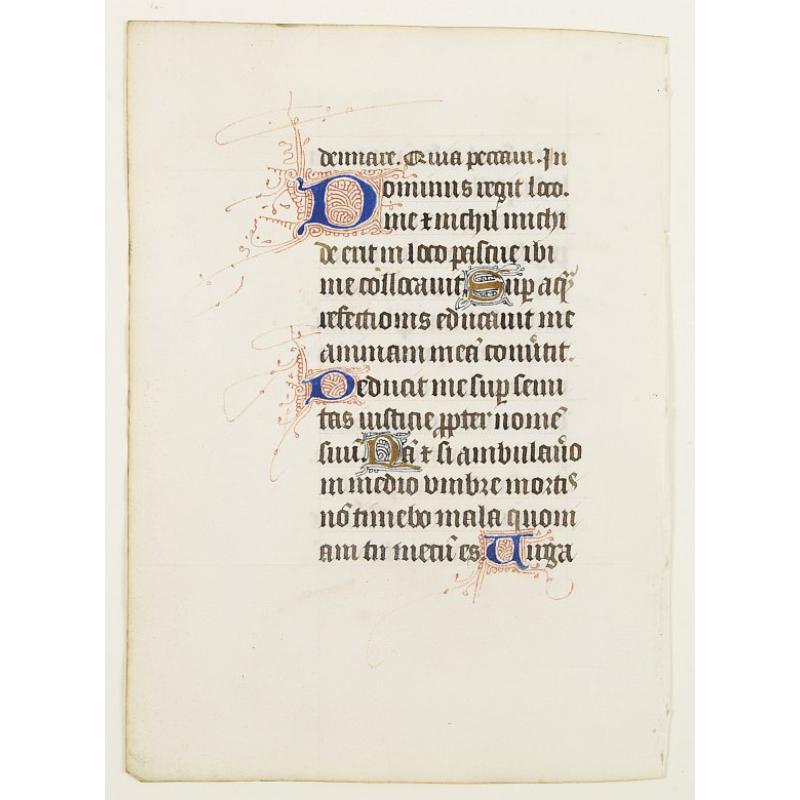 dermare. Quia peccaui. In
Dominus regit loco.
me ⁊ nichil michi
de erit in loco pascue ibi
me collocauit Suꝑ aqͣ
refectionis educauit me
animam meā conu̾tit.
Deducit me suꝑ semi
tas iusticie ꝓpter nomē
suū. Nā ⁊ si ambulau̾o
in medio vmbre mortis
nō timebo mala quom
am tu mecū es. Uirga